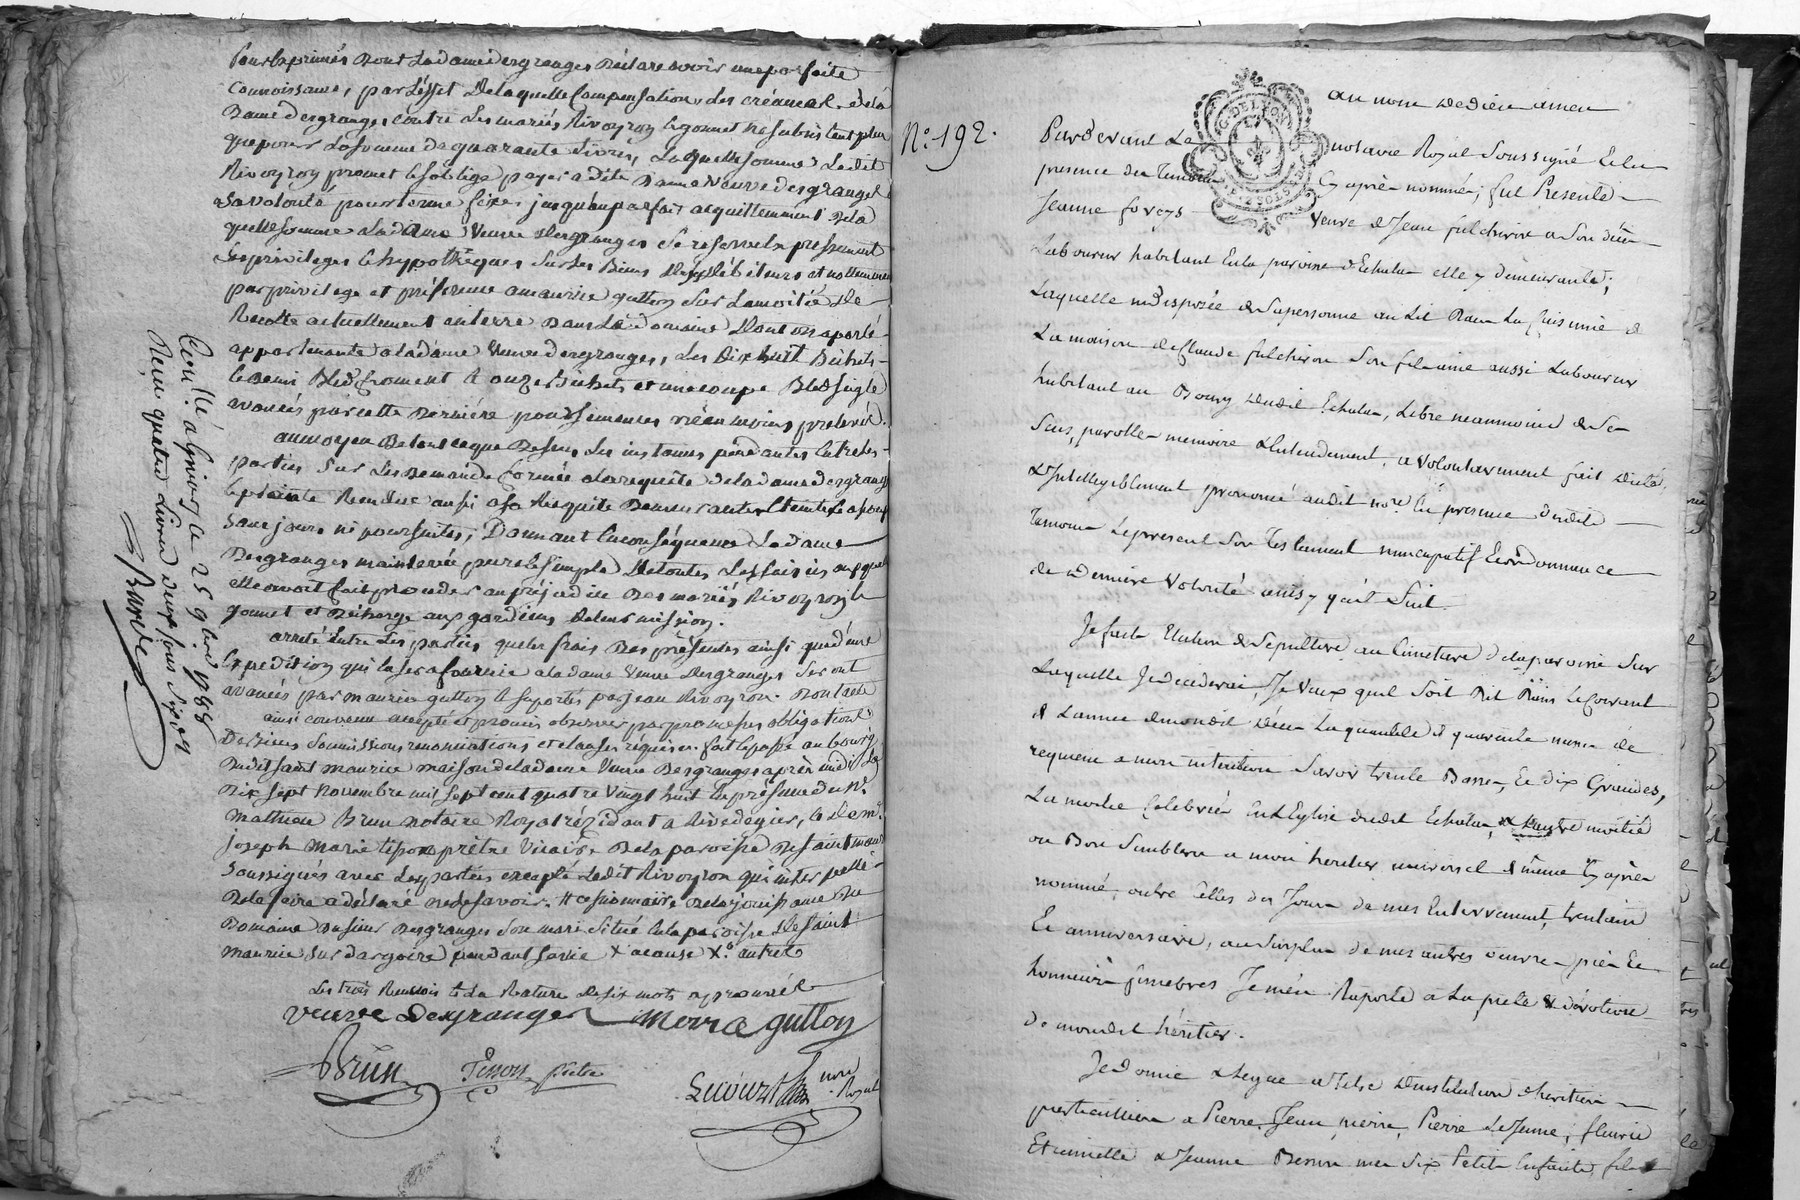 exprimés dont la dame desgranges déclare avoir une parfaite
connoissance, par l'effet de laquelle compensation des créances de la
Dame desgranges contre les mariés Rivoyron & gonnet ne subsistent plus
que pour la somme de quarante livres, laquelle somme ledit
Rivoyron promet & s'oblige payer a dite Dame veuve desgranges
a sa volonté pour terme fixe, jusqu'au parfait acquittement de la
quelle somme la dame veuve desgranges se reserve expressement
ses privileges & hypothèques sur les biens de ses débiteurs et nottamment
par privilege et préférence a maurice gutton sur la moitié de
Recolte actuellement en terre dans le domaine dont on a parlé
appartenante a la dame veuve desgranges, les dix huit Bichets
& demi Bled froment & onze Bichets et une coupe Bled seigle
avancés par cette derniére pour semences néanmoins prelevés.
au moyen de tout ce que dessus les instances pendantes entre les
parties sur les demandes formées a la requête de la dame desgranges
& plainte Rendue aussi a sa Requête demeurantes éteintes & assoupies
sans jours ni poursuites, Donnant en conséquence la dame
Desgranges mainlevée pure & simple de toutes les saisies auxquelles
elle avoit fait proceder au préjudice des mariés Rivoyron &
gonnet et décharge aux gardiens de leur mission.
arrêté entre les parties que les frais des présentes ainsi que d'une
Expedition qui sera fournie a la dame veuve desgranges seront
avancés par maurice gutton & suportés par jean Rivoyron. dont acte
ainsi convenu accepté et promis observer par promesses obligations
De Biens soumissions renonciations et clauses réquises. fait & passé au bourg
Dudit saint maurice maison de la dame veuve Desgranges après midi le
dix sept novembre mil sept cent quatre vingt huit en présence de Me
mathieu Brun notaire Royal résidant a Rivedegier, & de mr
joseph marie tisson prêtre vicaire de la paroisse de saint maurice
soussignés avec les parties excepté ledit Rivoyron qui interpellé
de le faire a déclaré ne le savoir. # cessionnaire de la jouissance du
Domaine du sieur desgranges son mari situé en la paroisse de saint
maurice sur dargoire pendant sa vie X a cause X. autrets
Les trois Renvois & la Rature de six mots approuvés
veuve Desgranges morice gutton
Brun Tisson prêtre
not Royal
Con.lle à Rgniers ce 25 9bre 1788
Reçu quatre Livres deux sous six d
N.o 192.
au nom de dieu amen
Pardevant Le notaire Royal Soussigné & en
presence des temoins Cy après nommés, fut Presente
Jeanne foreys veuve de Jean fulchiron a son vivant
Laboureur habitant en la paroisse d'Echalas elle y demeurante,
Laquelle indisposée de sa personne au Lit Dans La Cuisine de
La maison de Claude fulchiron Son fils ainé aussi Laboureur
habitant au Bourg dudit Echalas, Libre neanmoins de Ses
Sens, parolle memoire & Entendement, a volontairement fait dicté
& Intelligiblement prononcé audit nore En presence desdits
temoins Le present Son Testament nuncupatif & ordonnance
de derniere volonté ainsy qu'il Suit.
Je fais Election de Sepulture au Cimetiere de la paroisse Sur
Laquelle Je decederai, Je veux quil Soit Dit Dans Le Courant
de L'année de mondit déces La quantité de quarante messes de
requiem a mon intention Savoir trente Basses, & dix Grandes,
La moitié Celebrées En L'Eglise dudit Echalas, & L'autre moitié
ou Bon Semblera a mon heritier universel de même Cy après
nommé, outre Celles des Jours de mes Enterrement, trentain
& anniversaire, au Surplus de mes autres oeuvres pies &
honneurs funebres Je m'en Raporte a La pieté & dévotion
de mondit héritier.
Je donne & Legue a titre D'institution d'heritiers
particulliers a Pierre, Jean, Pierre, Pierre Le Jeune, fleurie
Et & Jeanne Besson mes Six Petits Enfants, fils